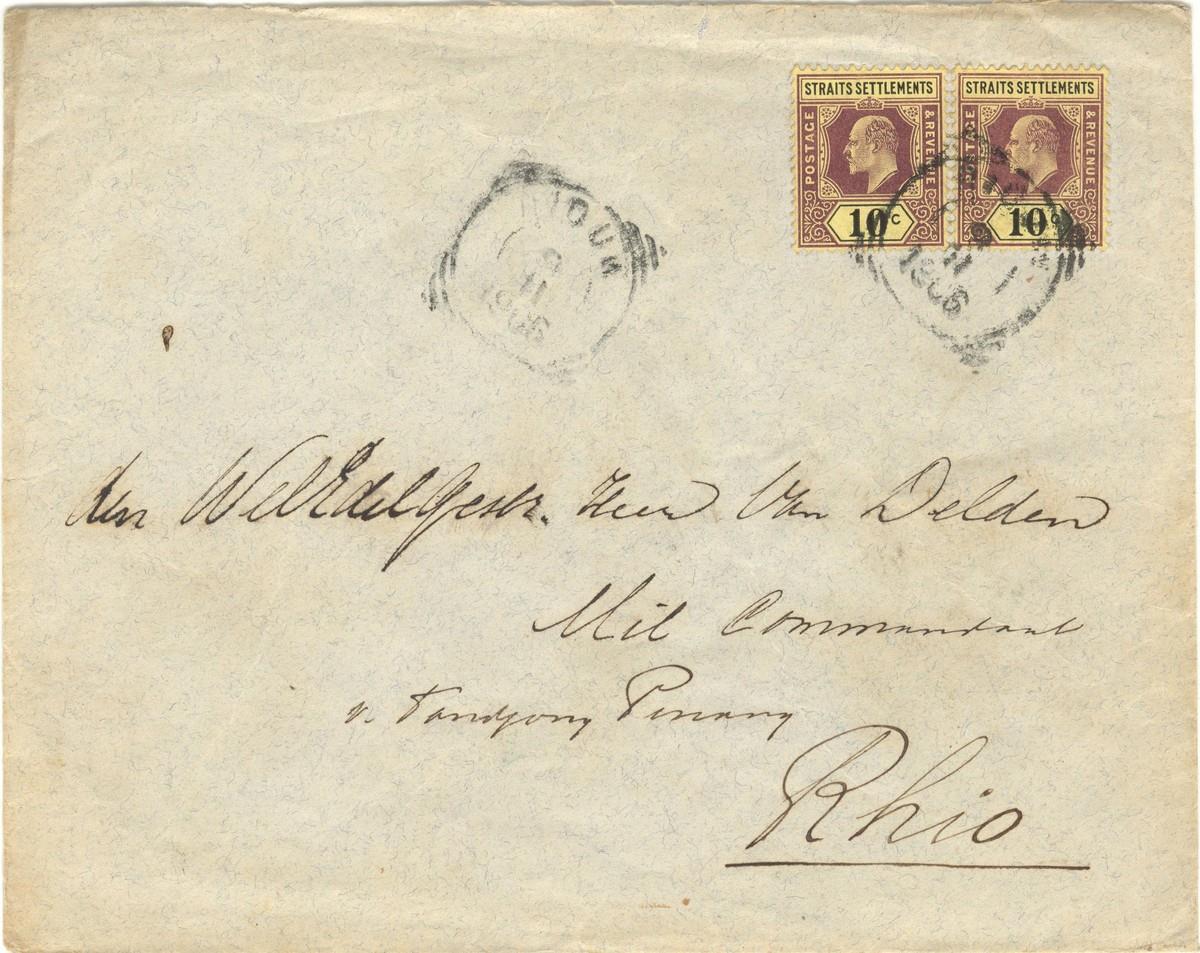 STRAITS SETTLEMENTS STRAITS SETTLEMENTS
POSTAGE & REVENUE POSTAGE & REVENUE
10c 10c
RIOUW
9
11
1906
9
11
1906
den WelEdelGestr. Heer Van Delden
Mil Commandant
v. Tandjong Pinang
Rhio